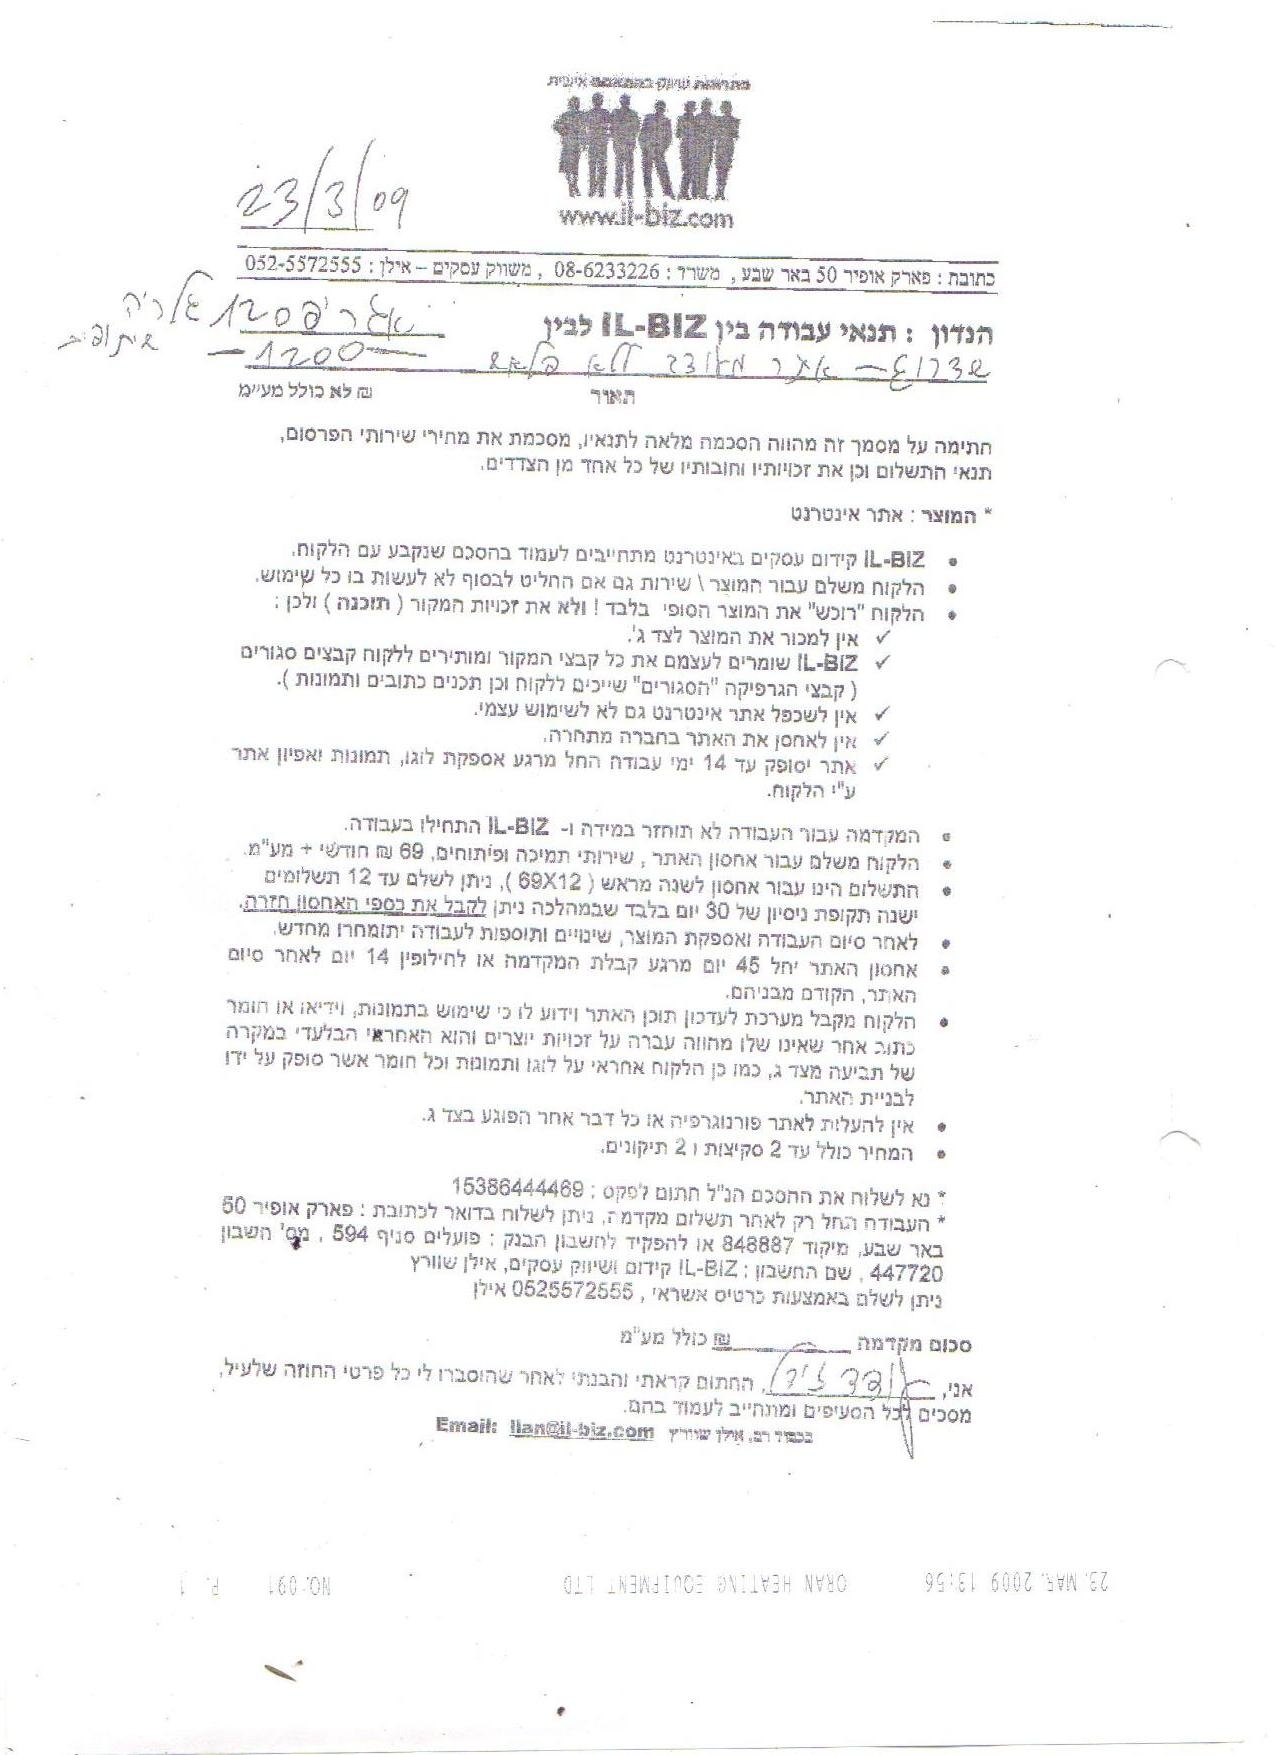 פתרונות שיווק בהתאמה אישית
www.il-biz.com
23/3/09
כתובת : פארק אופיר 50 באר שבע , משרד : 08-6233226 , משווק עסקים – אילן : 052-5572555
הנדון : תנאי עבודה בין IL-BIZ לבין
שדרוג – אתר ללא –1200–
תאור ₪ לא כולל מע"מ
חתימה על מסמך זה מהווה הסכמה מלאה לתנאיו, מסכמת את מחירי שירותי הפרסום,
תנאי התשלום וכן את זכויותיו וחובותיו של כל אחד מן הצדדים.
* המוצר : אתר אינטרנט
• IL-BIZ קידום עסקים באינטרנט מתחייבים לעמוד בהסכם שנקבע עם הלקוח.
• הלקוח משלם עבור המוצר \ שירות גם אם החליט לבסוף לא לעשות בו כל שימוש.
• הלקוח "רוכש" את המוצר הסופי בלבד ! ולא את זכויות המקור ( תוכנה ) ולכן :
✓ אין למכור את המוצר לצד ג'.
✓ IL-BIZ שומרים לעצמם את כל קבצי המקור ומותירים ללקוח קבצים סגורים
( קבצי הגרפיקה "הסגורים" שייכים ללקוח וכן תכנים כתובים ותמונות ).
✓ אין לשכפל אתר אינטרנט גם לא לשימוש עצמי.
✓ אין לאחסן את האתר בחברה מתחרה.
✓ אתר יסופק עד 14 ימי עבודה החל מרגע אספקת לוגו, תמונות ואפיון אתר
ע"י הלקוח.
• המקדמה עבור העבודה לא תוחזר במידה ו- IL-BIZ התחילו בעבודה.
• הלקוח משלם עבור אחסון האתר , שירותי תמיכה ופיתוחים, 69 ₪ חודשי + מע"מ.
• התשלום הינו עבור אחסון לשנה מראש ( 69X12 ), ניתן לשלם עד 12 תשלומים
ישנה תקופת ניסיון של 30 יום בלבד שבמהלכה ניתן לקבל את כספי האחסון חזרה.
• לאחר סיום העבודה ואספקת המוצר, שינויים ותוספות לעבודה יתומחרו מחדש.
• אחסון האתר יחל 45 יום מרגע קבלת המקדמה או לחילופין 14 יום לאחר סיום
האתר, הקודם מבניהם.
• הלקוח מקבל מערכת לעדכון תוכן האתר וידוע לו כי שימוש בתמונות, וידיאו או חומר
כתוב אחר שאינו שלו מהווה עברה על זכויות יוצרים והוא האחראי הבלעדי במקרה
של תביעה מצד ג, כמו כן הלקוח אחראי על לוגו ותמונות וכל חומר אשר סופק על ידו
לבניית האתר.
• אין להעלות לאתר פורנוגרפיה או כל דבר אחר הפוגע בצד ג.
• המחיר כולל עד 2 סקיצות ו 2 תיקונים.
* נא לשלוח את ההסכם הנ"ל חתום לפקס : 15386444469
* העבודה תחל רק לאחר תשלום מקדמה, ניתן לשלוח בדואר לכתובת : פארק אופיר 50
באר שבע, מיקוד 848887 או להפקיד לחשבון הבנק : פועלים סניף 594 , מס' חשבון
447720 , שם החשבון : IL-BIZ קידום ושיווק עסקים, אילן שוורץ
ניתן לשלם באמצעות כרטיס אשראי , 0525572555 אילן
סכום מקדמה ₪ כולל מע"מ
אני, , החתום קראתי והבנתי לאחר שהוסברו לי כל פרטי החוזה שלעיל,
מסכים לכל הסעיפים ומתחייב לעמוד בהם.
בכבוד רב, אילן שוורץ Email: Ilan@il-biz.com
23. MAR. 2009 13:56 ORAN HEATING EQUIPMENT LTD NO. 091 P. 1